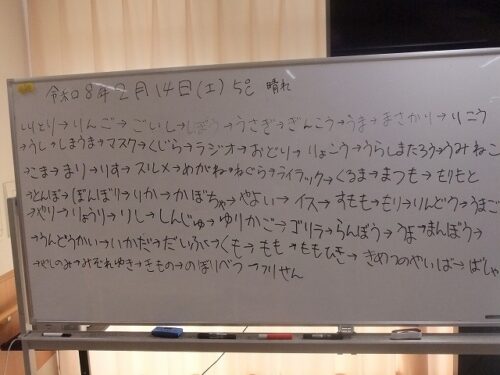 令和8年2月14日(土) 5℃ 晴れ
しりとり→りんご→ごいし→しぼう→うさぎ→ぎんこう→うま→まさかり→りこう
→うし→しまうま→マスク→くじら→ラジオ→おどり→りょこう→うらしまたろう→うみねこ
→こま→まり→りす→スルメ→めがね→ねぐら→ライラック→くるま→まつも→もりもと
→とんぼ→ぼんぼり→りか→かぼちゃ→やよい→イス→すもも→もり→りんどう→うまご
→やり→りょうり→りし→しんじゅ→ゆりかご→ゴリラ→らんぼう→うま→まんぼう→
→うんどうかい→いかだ→だいふく→くも→もも→ももひき→きめつのやいば→ばしゃ
→やしのみ→みぞれゆき→きもの→のぼりべつ→フリせん